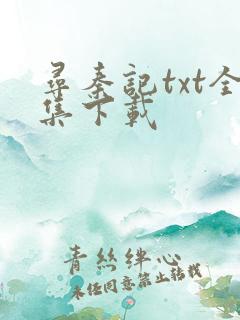 尋秦記txt全
集下載
青絲绊心
未经同意禁止转载